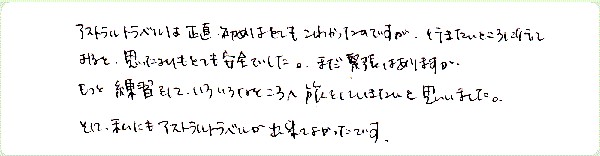 アストラルトラベルは正直、初めはとてもこわかったのですが、行きたいところに行って
みると、思ったよりもとても安全でした。まだ緊張はありますが、
もっと練習をして、いろいろなところへ旅をしていきたいと思いました。
そして、私にもアストラルトラベルが出来てよかったです。